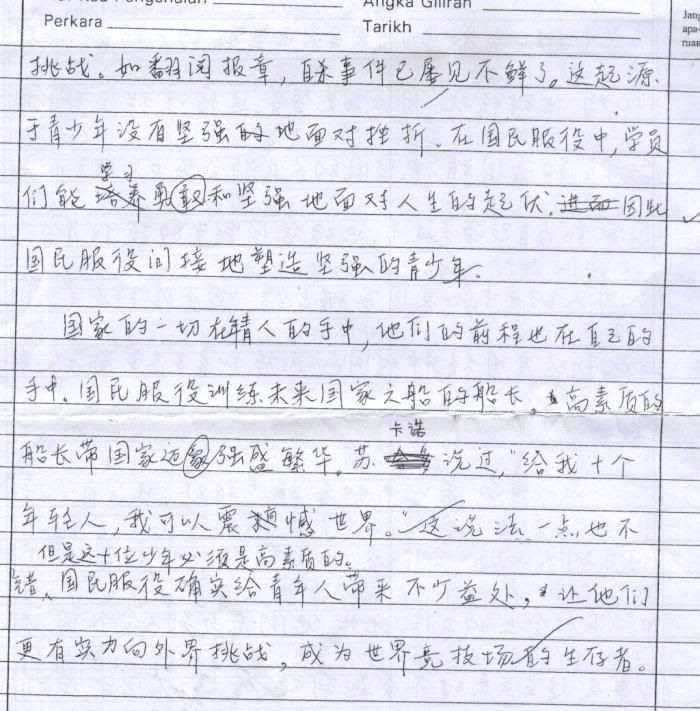 Perkara
Angka Giliran
Tarikh
挑战。如翻阅报章，自杀事件已屡见不鲜了。这起源
于青少年没有坚强的地面对挫折。在国民服役中，学员
学习
们能培养勇敢和坚强地面对人生的起伏。进而因此
国民服役间接地塑造坚强的青少年。
国家的一切在年青人的手中，他们的前程也在自己的
手中。国民服役训练未来国家之船的船长，高素质的
卡诺
船长带国家迈家强盛繁华。苏 说过，“给我十个
年轻人，我可以震撼世界。”这说法一点也不
但是这十位少年必须是高素质的。
错。国民服役确实给青年人带来不少益处，让他们
更有实力向外界挑战，成为世界竞技场的生存者。